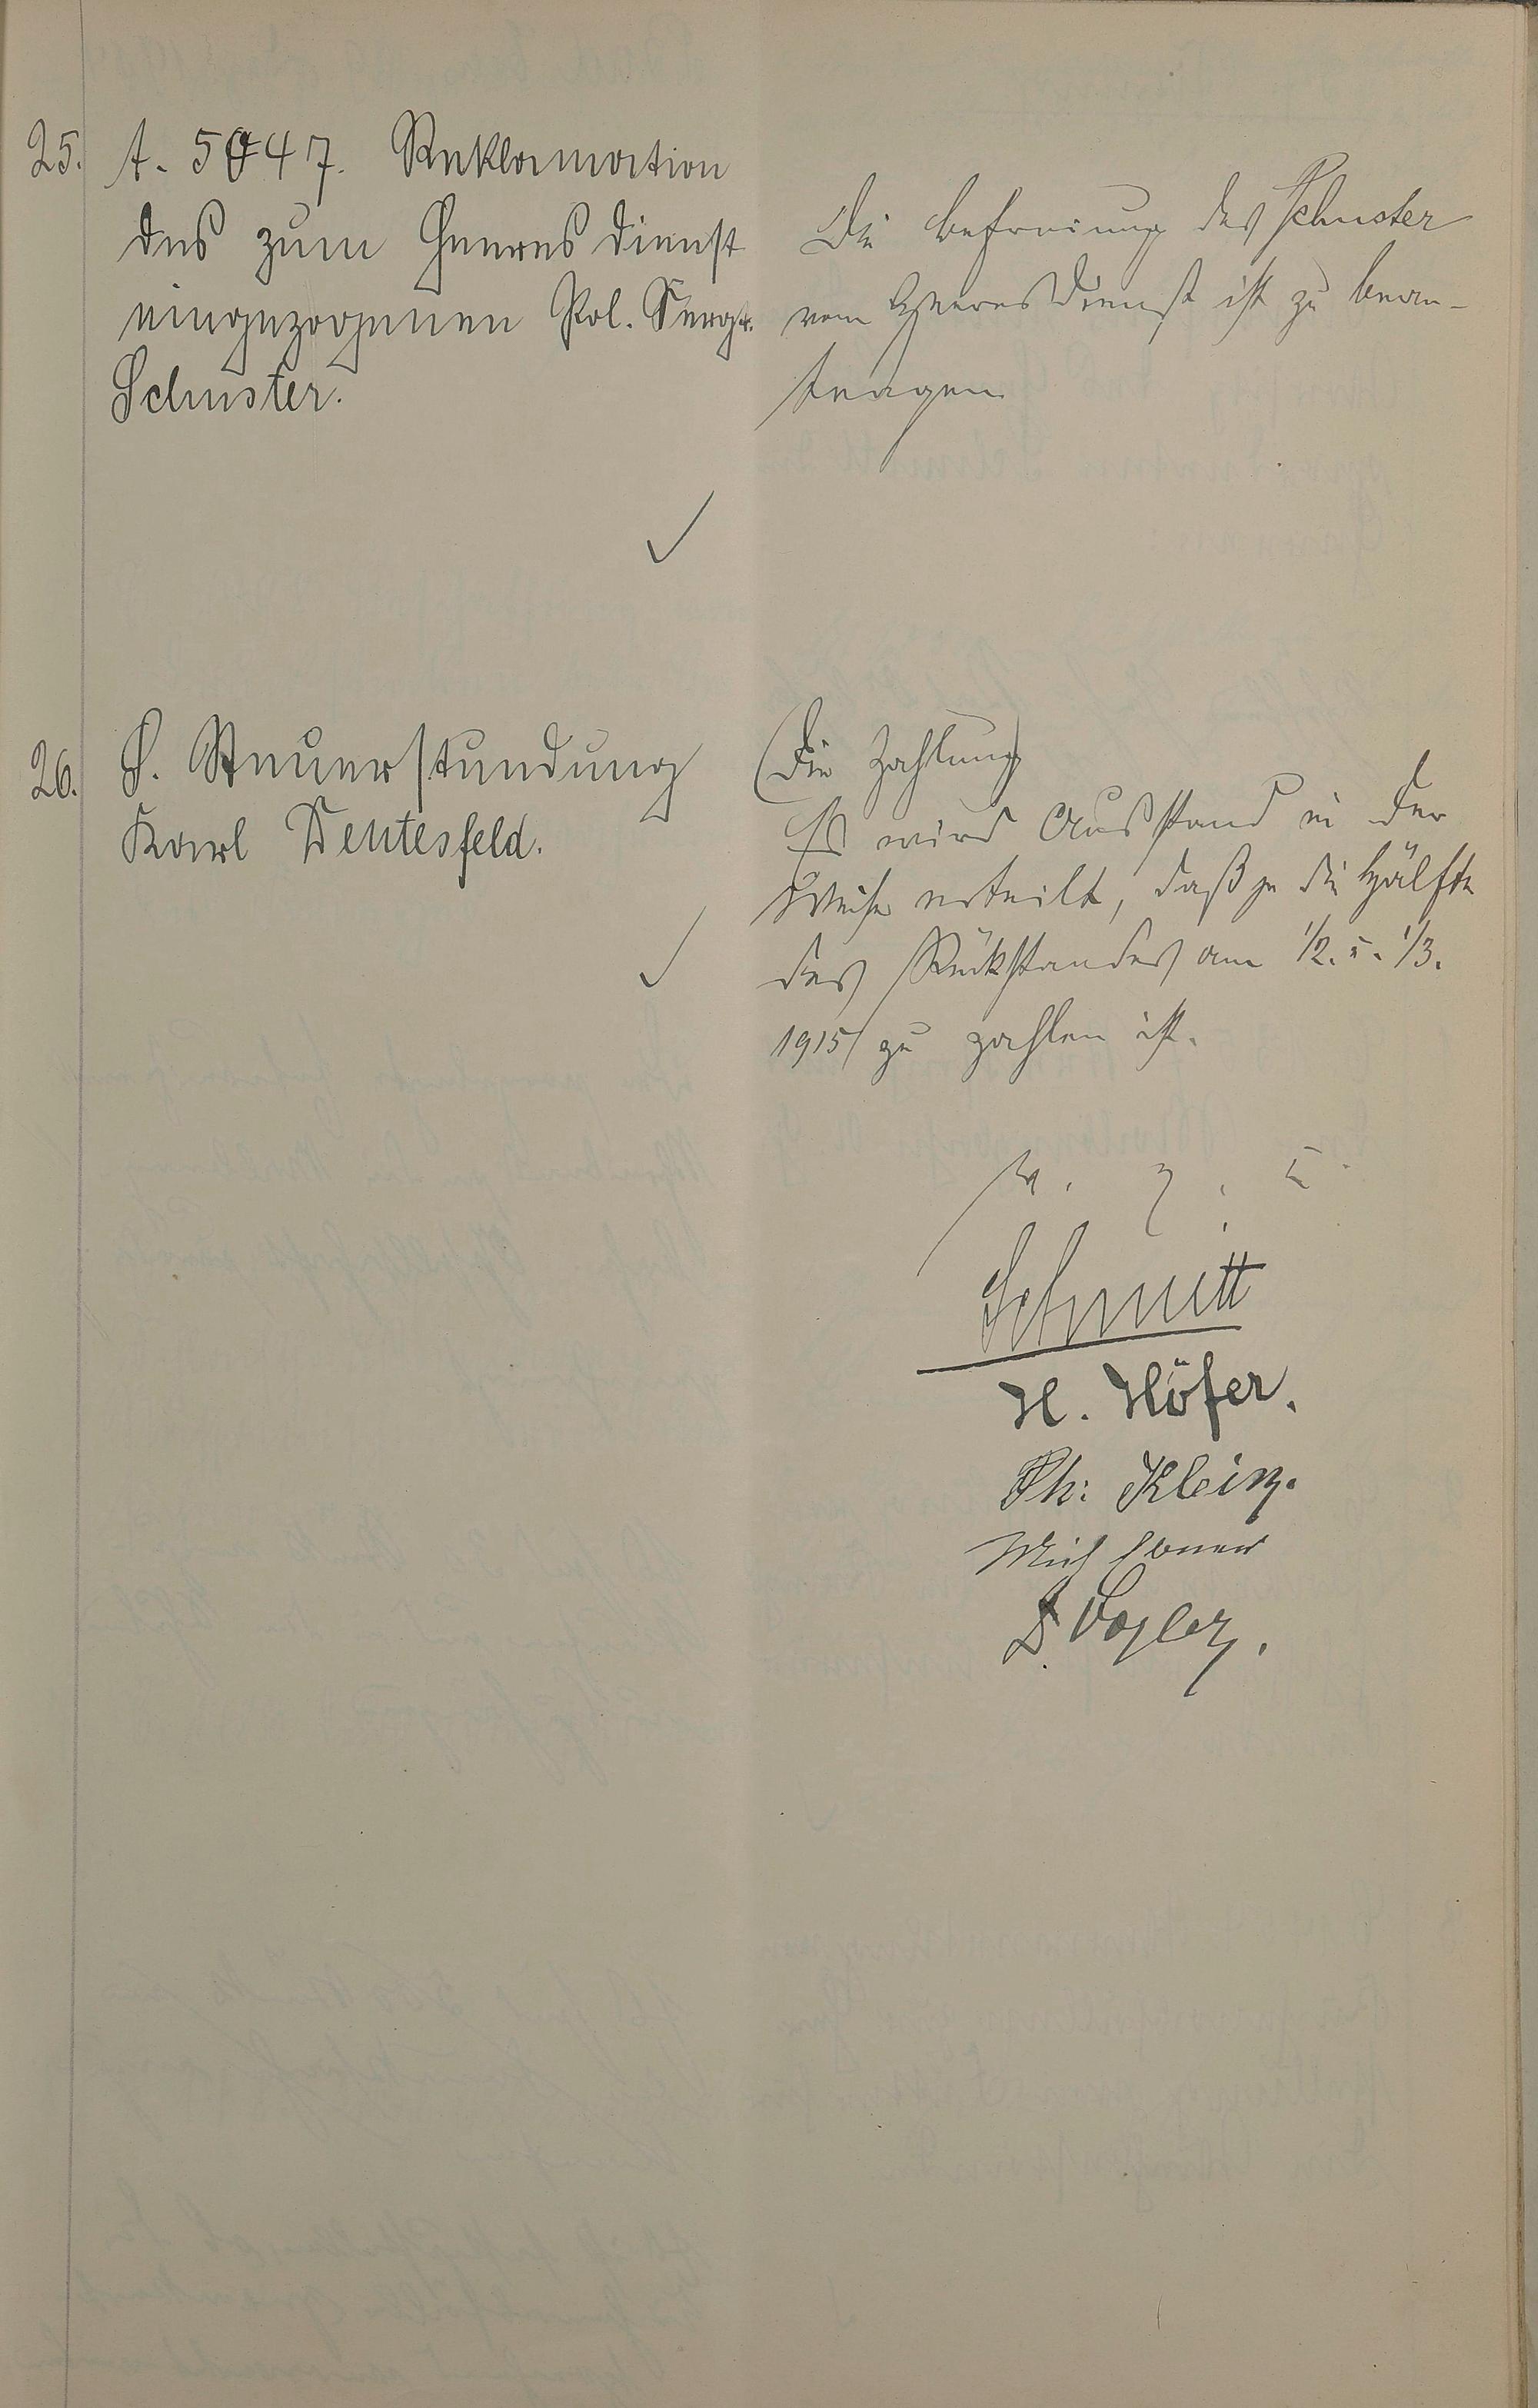 25. A. 5047. Reklamation
des zum Heeresdienst
eingezogenen Pol. Sergt.
Schuster.
Die Befreiung des Schuster
vom Heeresdienst ist zu bean-
tragen
26. S. Steuerstundung
Karl Deutesfeld.
(Die Zahlung)
Es wird Ausstand in der
Weise erteilt, daß je die Hälfte
des Rückstandes am 1/2. u. 1/3.
1915 zu zahlen ist.
v. g. u.
Schmitt
H. Höfer.
Ph: Klein.
Mich
Vogler.